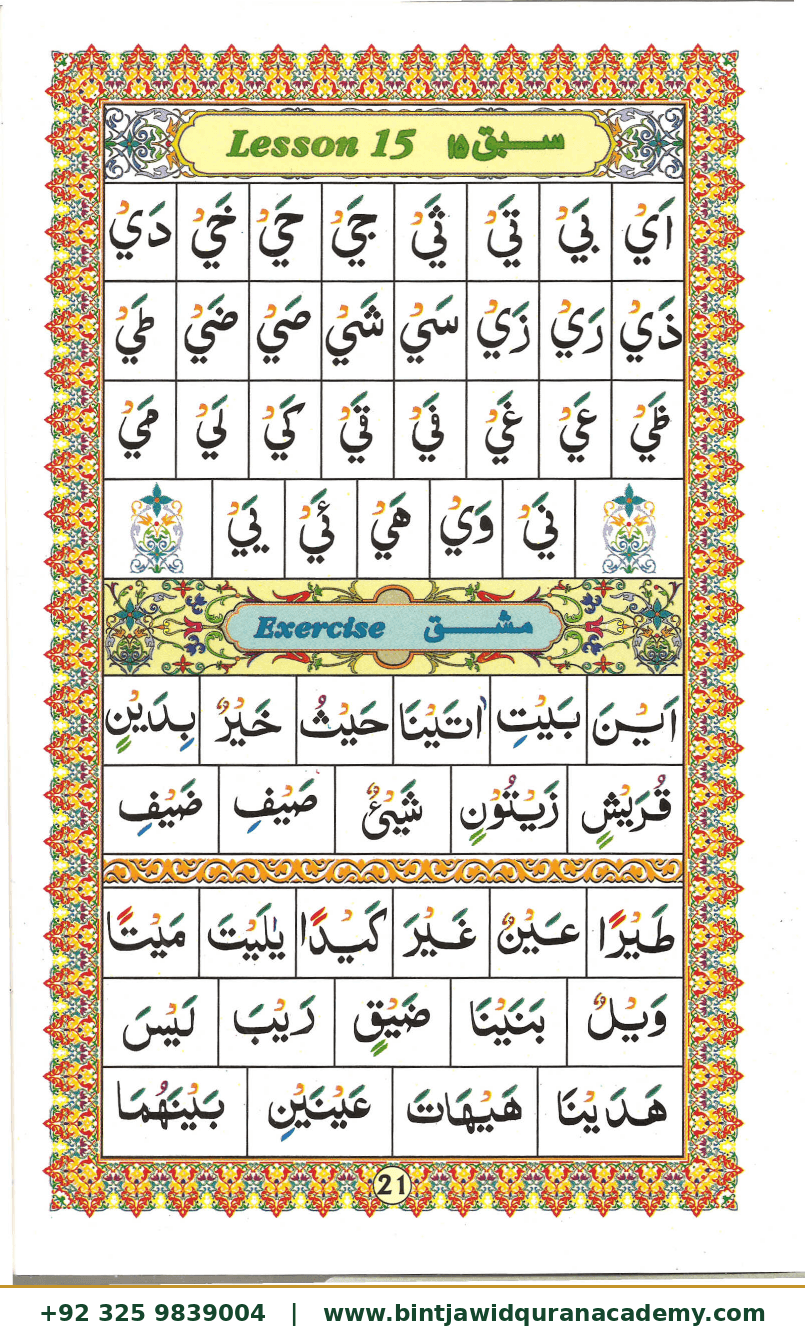 Lesson 15 سبق ۱۵
اَيْ بَيْ تَيْ ثَيْ جَيْ حَيْ خَيْ دَيْ
ذَيْ رَيْ زَيْ سَيْ شَيْ صَيْ ضَيْ طَيْ
ظَيْ عَيْ غَيْ فَيْ قَيْ كَيْ لَيْ مَيْ
نَيْ وَيْ هَيْ ئَيْ يَيْ
Exercise مشق
اَيْنَ بَيْتِ اٰتَيْنَا حَيْثُ خَيْرٌ بِدَيْنٍ
قُرَيْشٍ زَيْتُوْنٍ شَيْئٌ صَيْفِ ضَيْفِ
طَيْرًا عَيْنٌ غَيْرَ كَيْدًا يٰلَيْتَ مَيْتًا
وَيْلٌ بَنَيْنَا ضَيْقٍ رَيْبَ لَيْسَ
هَدَيْنَا هَيْهَاتَ عَيْنَيْنِ بَيْنَهُمَا
21
+92 325 9839004 | www.bintjawidquranacademy.com